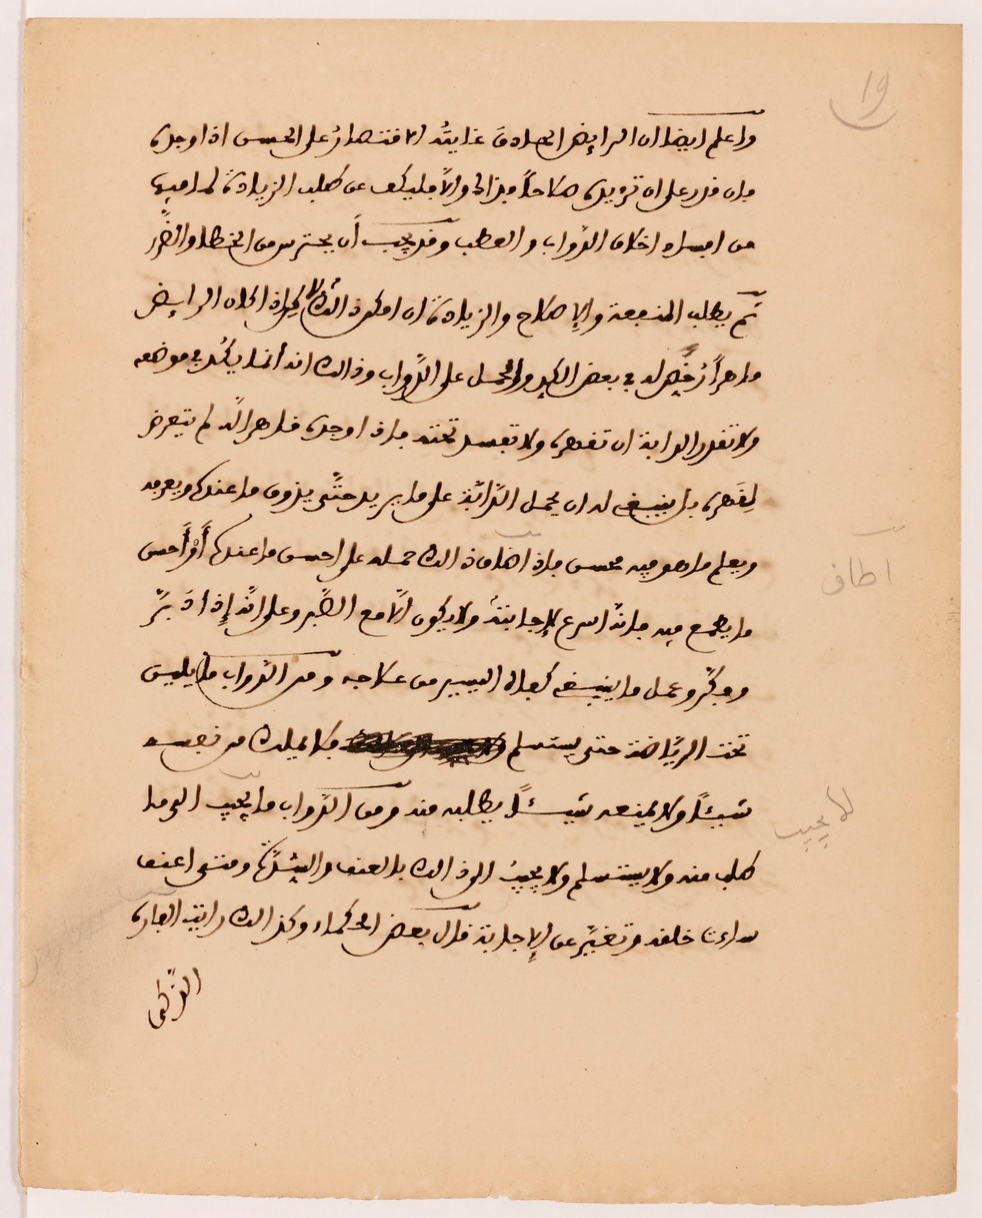 ١٩
واعلم ايضا ان الرايض الحاذق غايتُه الاقتصارُ على الحسن اذا وجده
فان قدر على ان تزيده صلاحاً فذالك والاّ فليكف عن طلب الزيادة لما فيها
من افساد اخلاق الدّواب والعطب وقد يجب أن يحترس من الخطا والضّرر
ثم يطلب المنفعة والإصلاح والزيادة ان امكن ذالك لحِذاذ الرايض
ماهراً رُخِّص له في بعض الكبد والحمل على الدّواب وذالك انه انما يكدّ في موضعه
ولا تقدر الدابة ان تقهره ولا تفسد تحته فاذا وجده قاهر الَه لم يتعرض
لِقَهره بل ينبغي له ان يحمل الدّابّة على ما يريد حتّى يذوق ما عندها ويعرفه
ويعلم ما هو فيه محسن فاذا اطاق ذالك حمله على احسن ما عندها أوْ أحسن
ما يطمع فيه فانهُ اسرع لإجابتهُ ولا يكون الّا مع الصّبر وعلى انّه إذ اَدَ برّ
وفكّر وعمل ما ينبغي كفاه اليسير من علاجه ومن الدّواب ما يليس
تحت الريّاضة حتى يستسلم فلا يملك من نفسه
شيئاً ولا يمنعه شيئاً يطلبه منه ومن الدّواب ما يجيب الى ما
طلب منه ولا يستسلم ولا يجيبُ الى ذالك بالعنف والشدّة ومتى اعنف
ساءت خلقه وتغيّر عن الإجابة قال بعض الحكماء وكذالك رايت الفاره
الذّكى
اطاق
لا يجيب